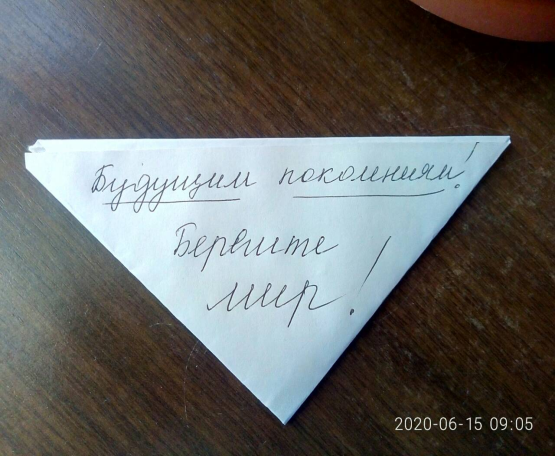 Будущим поколениям!
Берегите
мир!
2020-06-15 09:05